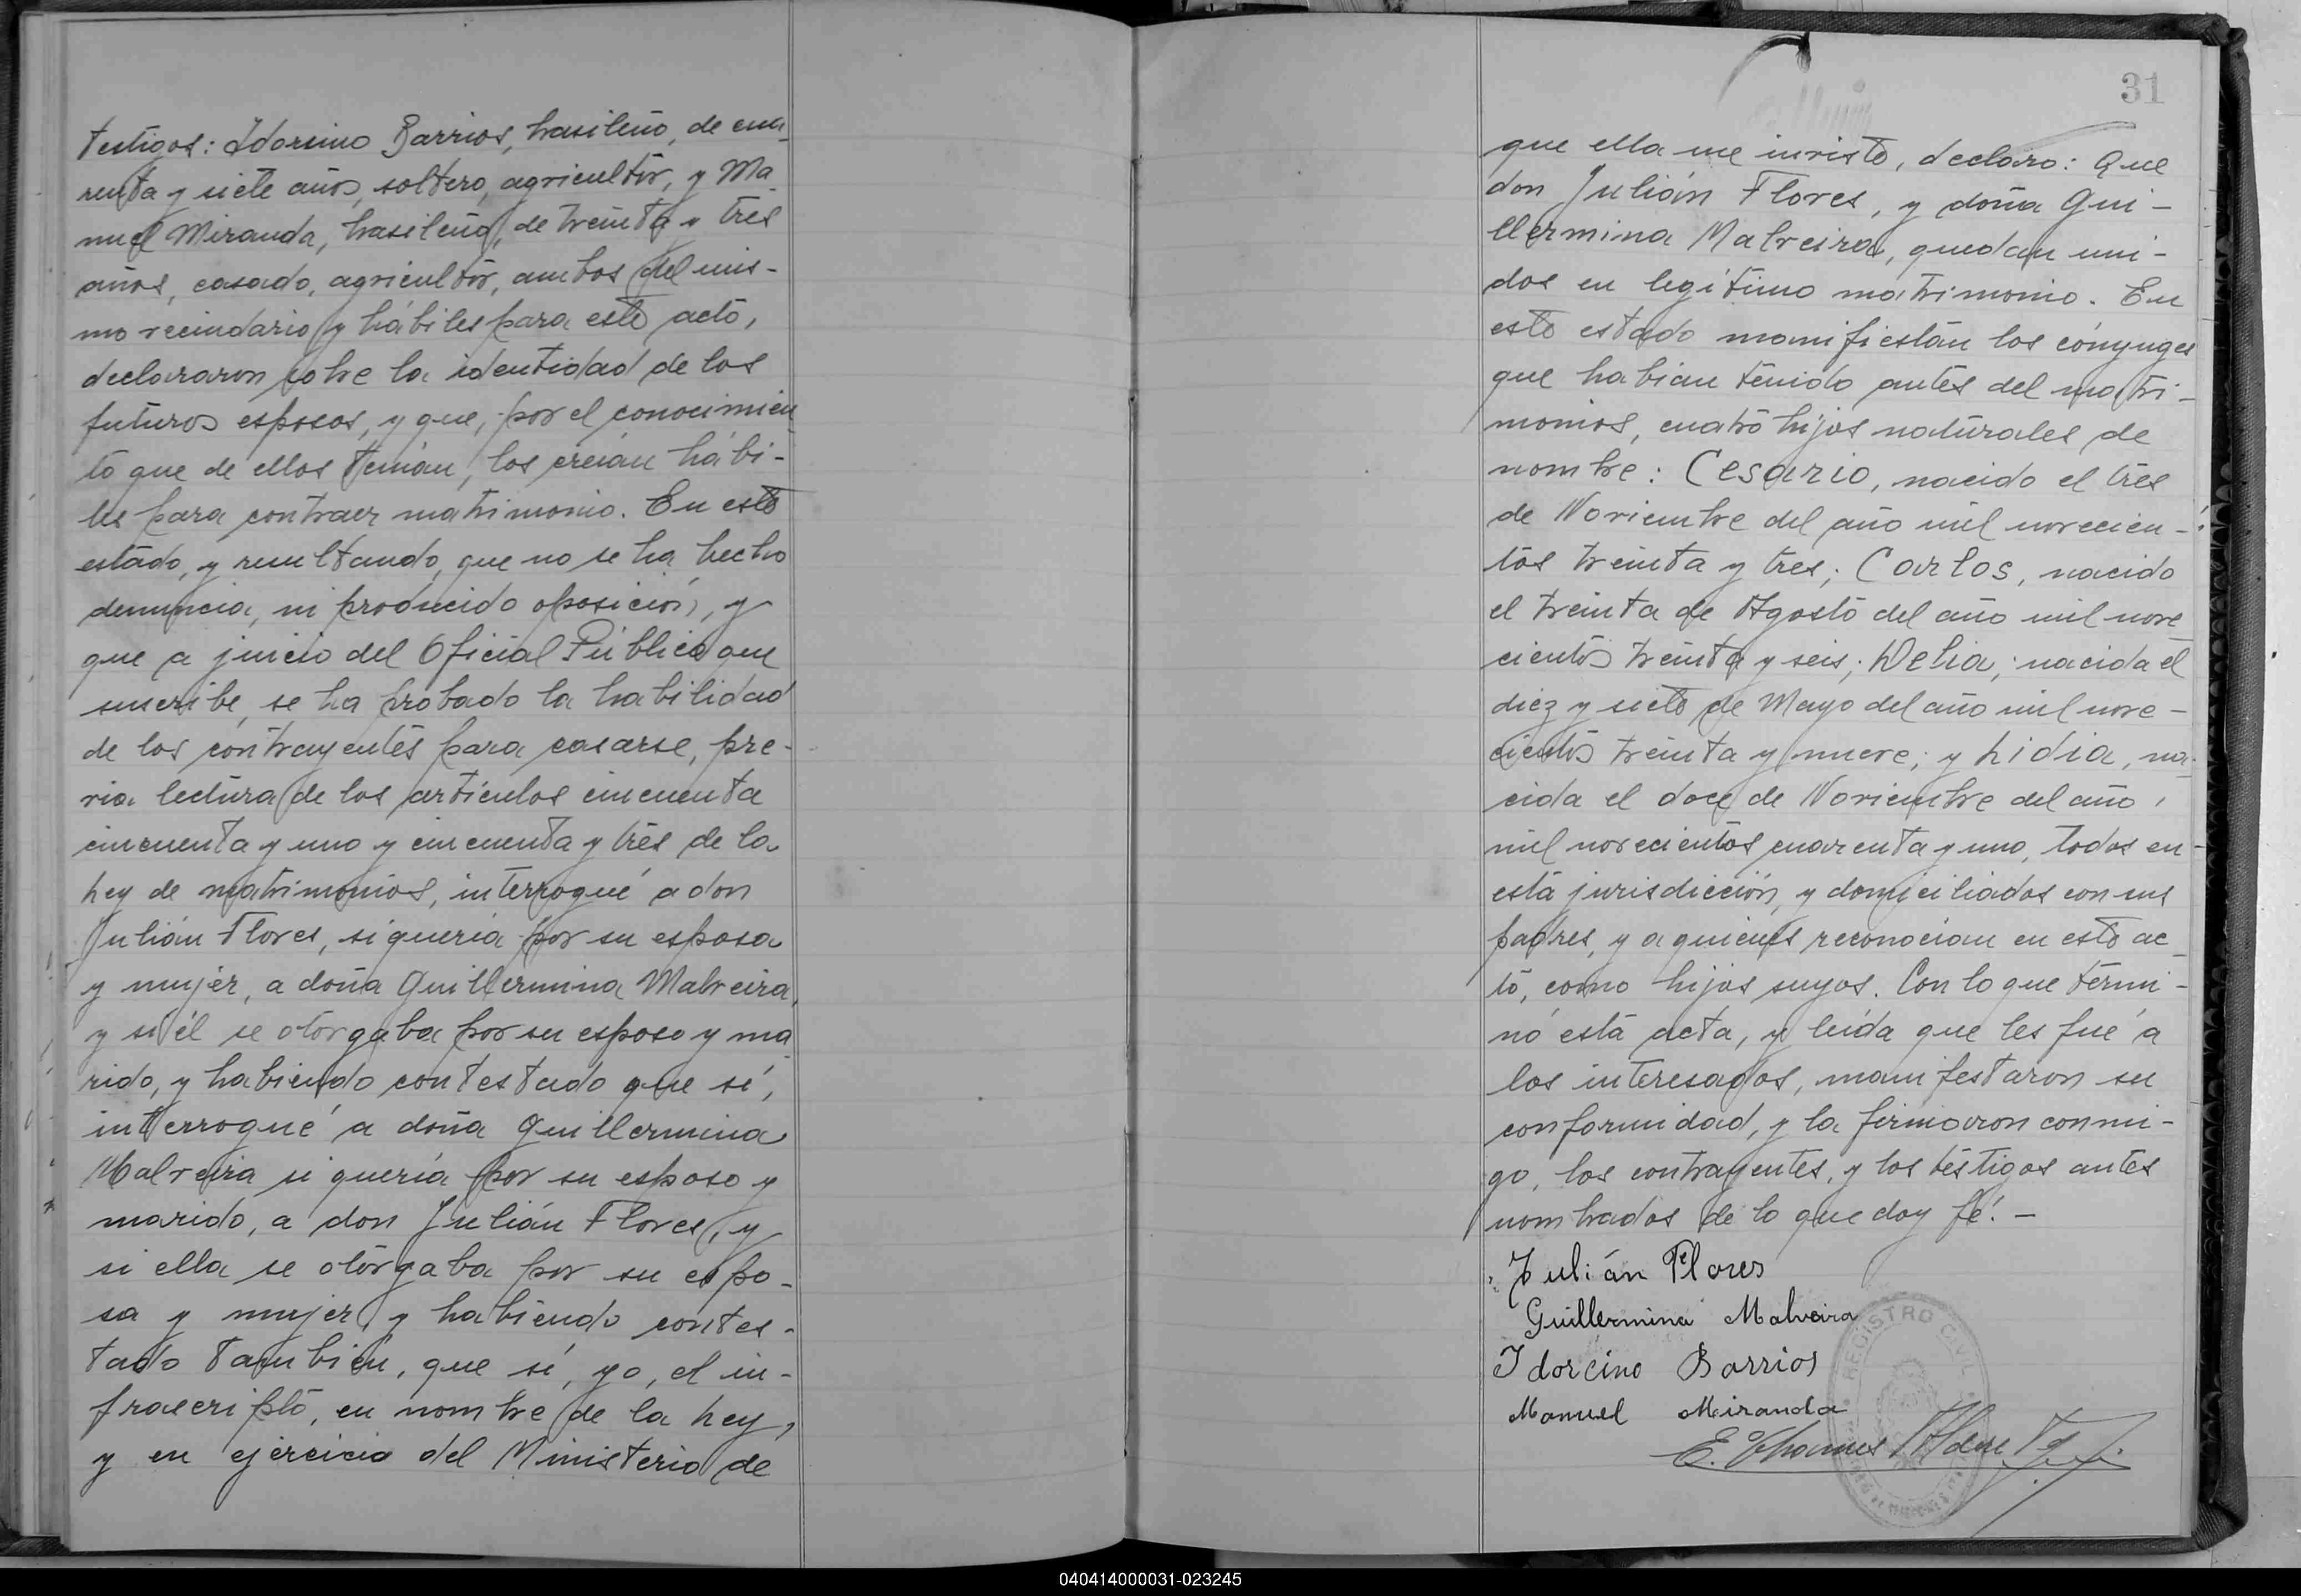 testigos: Idorsino Barrios, brasileño, de cua-
renta y siete años, soltero, agricultor, y Ma-
nuel Miranda, brasileño, de treinta y tres
años, casado, agricultor, ambos del mis-
mo vecindario y hábiles para este acto,
declararon sobre la identidad de los
futuros esposos, y que, por el conocimien-
to que de ellos tenían, los creían hábi-
les para contraer matrimonio. En este
estado, y resultando, que no se ha hecho
denuncia, ni producido oposición, y
que a juicio del Oficial Público que
suscribe, se ha probado la habilidad
de los contrayentes para casarse, pre-
via lectura de los artículos cincuenta
cincuenta y uno y cincuenta y tres de la
Ley de matrimonios, interrogué a don
Julián Flores, si quería por su esposa
y mujer, a doña Guillermina Malveira,
y si él se otorgaba por su esposo y ma-
rido, y habiendo contestado que sí,
interrogué a doña Guillermina
Malveira si quería por su esposo y
marido, a don Julián Flores, y
si ella se otorgaba por su espo-
sa y mujer, y habiendo contes-
tado también, que sí, yo, el in-
frascripto, en nombre de la Ley,
y en ejercicio del Ministerio de
31
que ella me inviste, declaro: Que
don Julián Flores, y doña Gui-
llermina Malveira, quedan uni-
dos en legítimo matrimonio. En
este estado manifiestan los cónyuges
que habían tenido antes del matri-
monios, cuatro hijos naturales de
nombre: Cesario, nacido el tres
de Noviembre del año mil novecien-
tos treinta y tres; Carlos, nacido
el treinta de Agosto del año mil nove
cientos treinta y seis; Delia; nacida el
diez y siete de Mayo del año mil nove-
cientos treinta y nueve; y Lidia, na-
cida el doce de Noviembre del año
mil novecientos cuarenta y uno, todos en
esta jurisdicción, y domiciliados con sus
padres, y a quienes reconocían en este ac-
to, como hijos suyos. Con lo que termi-
nó esta acta, y leída que les fué a
los interesados, manifestaron su
conformidad, y la firmaron conmi-
go, los contrayentes, y los testigos antes
nombrados de lo que doy fé. -
Julián Flores
Guillermina Malveira
Idorcino Barrios
Manuel Miranda
REGISTRO CIVIL
040414000031-023245